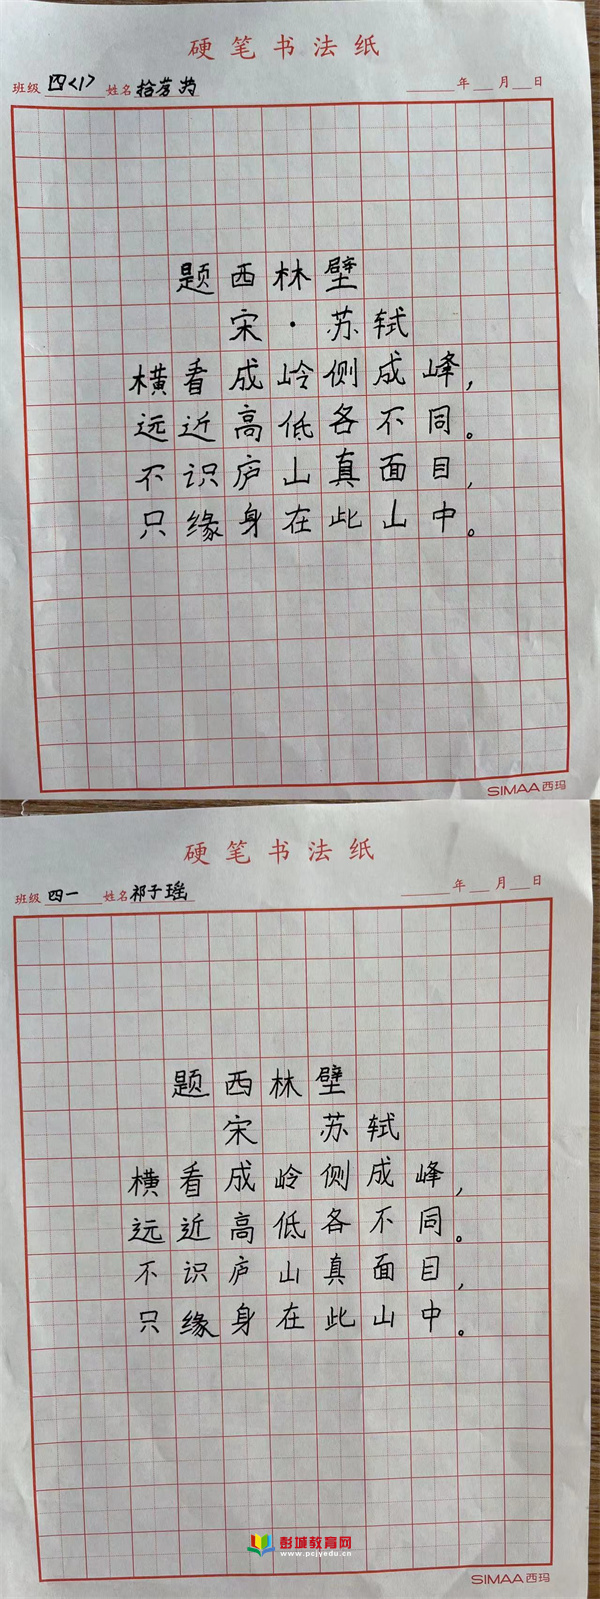 硬笔书法纸
班级 四<1> 姓名 拾荐 年 月 日
题西林壁
宋·苏轼
横看成岭侧成峰,
远近高低各不同。
不识庐山真面目,
只缘身在此山中。
SIMAA西玛
硬笔书法纸
班级 四一 姓名 祁子瑶 年 月 日
题西林壁
宋 苏轼
横看成岭侧成峰,
远近高低各不同。
不识庐山真面目,
只缘身在此山中。
彭城教育网
www.pcjyedu.cn
SIMAA西玛